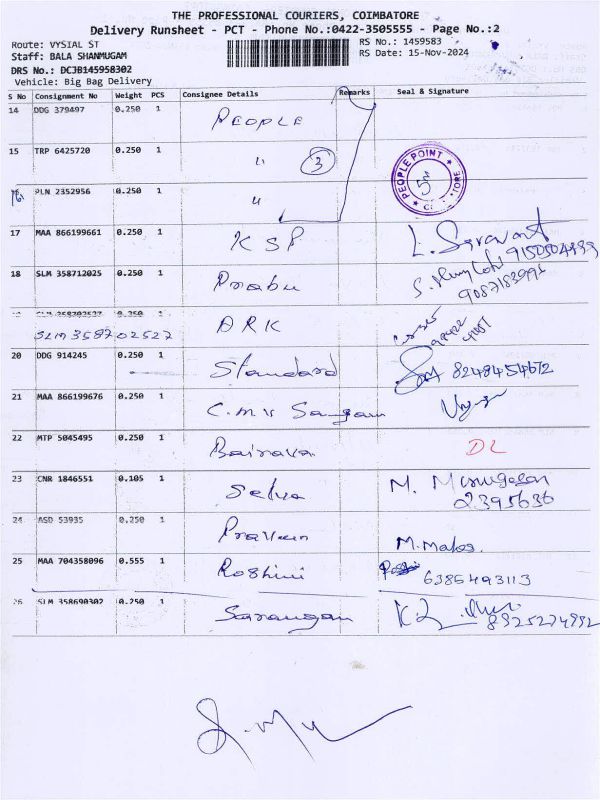 THE PROFESSIONAL COURIERS, COIMBATORE
Delivery Runsheet - PCT - Phone No.:0422-3505555 - Page No.:2
Route: VYSIAL ST
RS No.: 1459583
Staff: BALA SHANMUGAM
RS Date: 15-Nov-2024
DRS No.: DCJB145958302
Vehicle: Big Bag Delivery
S No Consignment No Weight PCS Consignee Details Remarks Seal & Signature
14 DDG 379497 0.250 1 PEOPLE
15 TRP 6425720 0.250 1 " 3 PEOPLE POINT
16 PLN 2352956 0.250 1 "
17 MAA 866199661 0.250 1 KSP
18 SLM 358712025 0.250 1 Prabu 9087183991
SLM 358702527 0.250 1 ARK
SLM 358702527
20 DDG 914245 0.250 1 Standard 8248454672
21 MAA 866199676 0.250 1 C.M.V Sangam
22 MTP 5045495 0.250 1 Bairava DL
23 CNR 1846551 0.105 1 Selva M. Murugesan
2395636
24 ASD 53935 0.250 1 Praveen
25 MAA 704358096 0.555 1 Roshini 6385493113
26 SLM 358690302 0.250 1 Sarangan